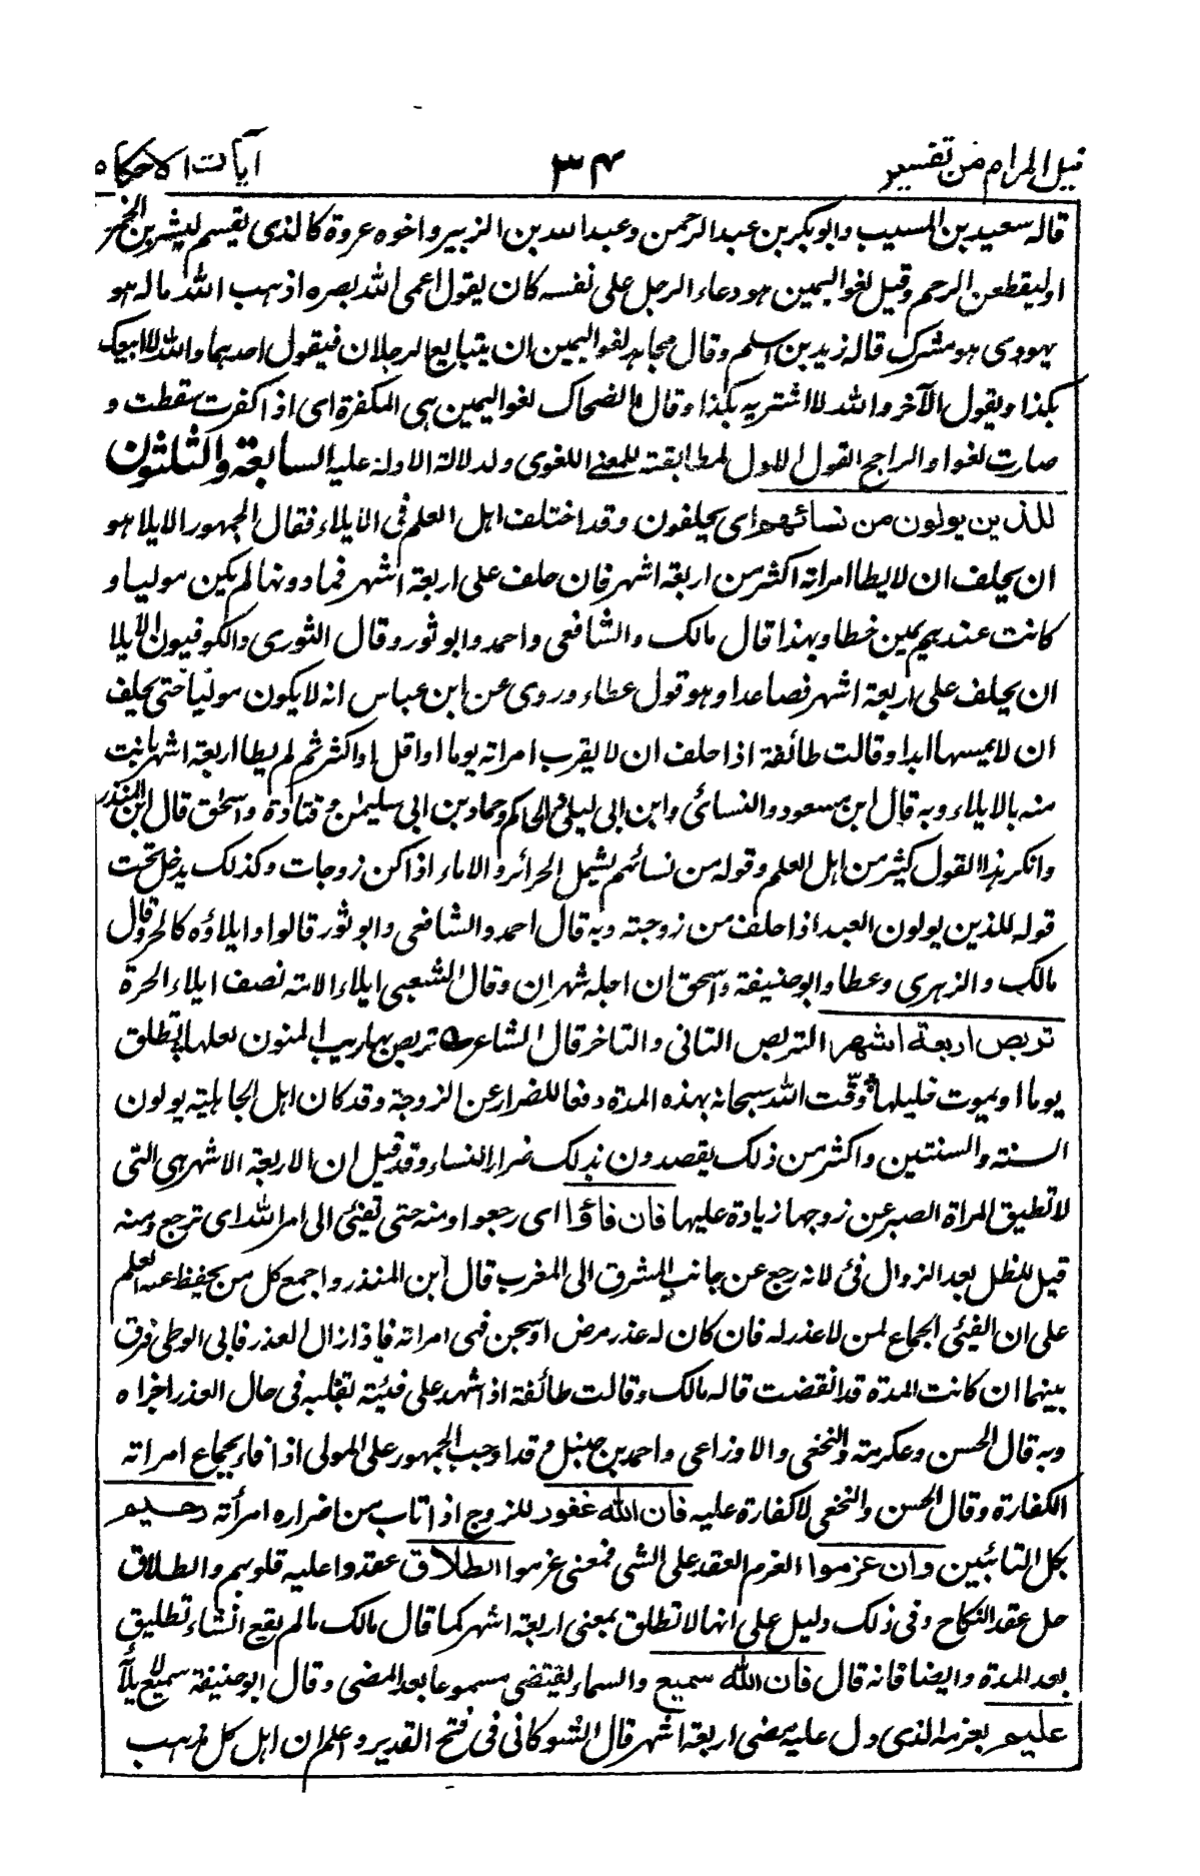 نيل المرام من تفسير ٣٤ آيات الاحكام
قاله سعيد بن المسيب وابو بكر بن عبد الرحمن وعبد الله بن الزبير واخوه عروة كالذى يقسم ليشربن الخمر
او ليقطعن الرحم وقيل لغو اليمين هو دعاء الرجل على نفسه كان يقول اعمى الله بصره اذهب الله ماله هو
يهودى هو مشرك قاله زيد بن اسلم وقال مجاهد لغو اليمين ان يتبايع الرجلان فيقول احدهما والله لا ابيعك
بكذا ويقول الآخر والله لا اشتريه بكذا وقال الضحاك لغو اليمين هى المكفرة اى اذا كفرت سقطت و
صارت لغوا والراجح القول الاول لمطابقته للمعنى اللغوى ولدلالة الادلة عليه السابعة والثلثون
للذين يولون من نسائهم اى يحلفون وقد اختلف اهل العلم فى الايلاء فقال الجمهور الايلا هو
ان يحلف ان لا يطا امراته اكثر من اربعة اشهر فان حلف على اربعة اشهر فما دونها لم يكن موليا و
كانت عندهم يمين خطا وبهذا قال مالك والشافعى واحمد وابو ثور وقال الثورى والكوفيون الايلا
ان يحلف على اربعة اشهر فصاعدا وهو قول عطاء وروى عن ابن عباس انه لا يكون موليا حتى يحلف
ان لا يمسها ابدا وقالت طائفة اذا حلف ان لا يقرب امراته يوما او اقل او اكثر ثم لم يطا اربعة اشهر بانت
منه بالايلاء وبه قال ابن مسعود والنسائى وابن ابى ليلى والحاكم وحماد بن ابى سليمن وقتادة واسحق قال ابن المنذر
وانكر هذا القول كثير من اهل العلم وقوله من نسائهم يشمل الحرائر والاماء اذا كن زوجات وكذلك يدخل تحت
قوله للذين يولون العبد اذا حلف من زوجته وبه قال احمد والشافعى وابو ثور قالوا وايلاؤه كالحر وقال
مالك والزهرى وعطا وابو حنيفة واسحق ان اجله شهران وقال الشعبى ايلاء الامة نصف ايلاء الحرة
تربص اربعة اشهر التربص التانى والتاخر قال الشاعر تربص بها ريب المنون لعلها تطلق
يوما او يموت حليلها وقت الله سبحانه بهذه المدة دفعا للضرار عن الزوجة وقد كان اهل الجاهلية يولون
السنة والسنتين واكثر من ذلك يقصدون بذلك ضرار النساء وقد قيل ان الاربعة الاشهر هى التى
لا تطيق المراة الصبر عن زوجها زيادة عليها فان فاؤا اى رجعوا ومنه حتى تفيئ الى امر الله اى ترجع ومنه
قيل للظل بعد الزوال فئ لانه رجع عن جانب المشرق الى المغرب قال ابن المنذر واجمع كل من يحفظ عنه العلم
على ان الفيئ الجماع لمن لا عذر له فان كان له عذر مرض او سجن فهى امراته فاذا زال العذر فابى الوطى فرق
بينهما ان كانت المدة قد انقضت قاله مالك وقالت طائفة اذا شهد على فيئته بقلبه فى حال العذر اجزاه
وبه قال الحسن وعكرمة والنخعى والاوزاعى واحمد بن حنبل وقد اوجب الجمهور على المولى اذا فاء بجماع امراته
الكفارة وقال الحسن والنخعى لا كفارة عليه فان الله غفور للزوج اذا تاب من اضراره امرأته رحيم
بكل التائبين وان عزموا العزم العقد على الشى فمعنى عزموا الطلاق عقدوا عليه قلوبهم والطلاق
حل عقد النكاح وفى ذلك دليل على انها لا تطلق بمعنى اربعة اشهر كما قال مالك ما لم يقع انشاء تطليق
بعد المدة وايضا فانه قال فان الله سميع والسماء يقتضى مسموعا بعد المضى وقال ابو حنيفة سميع لايلآ
عليم بعزمه الذى دل عليه مضى اربعة اشهر قال الشوكانى فى فتح القدير واعلم ان اهل كل مذهب